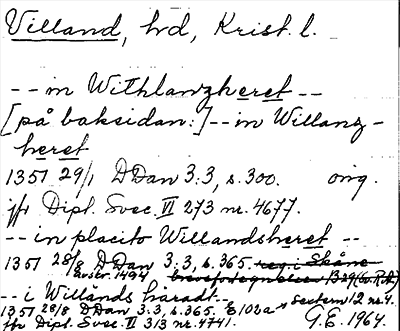 Villand, hd, Krist. l.
-- in Withlangheret --
[på baksidan:] -- in Willang-
heret
1351 29/1 DDan 3:3, s. 300. orig.
jfr Dipl. Svec. VI 273 nr. 4677.
-- in placito Willandsheret --
1351 28/8 DDan 3:3, s. 365. reg. i Skåne
avskr. 1494 brevfortegnelser
-- i Willands häradt --
1351 28/8 DDan 3:3, s. 365. E 102a
jfr Dipl. Svec. VI 313 nr. 4741. G.E. 1964.